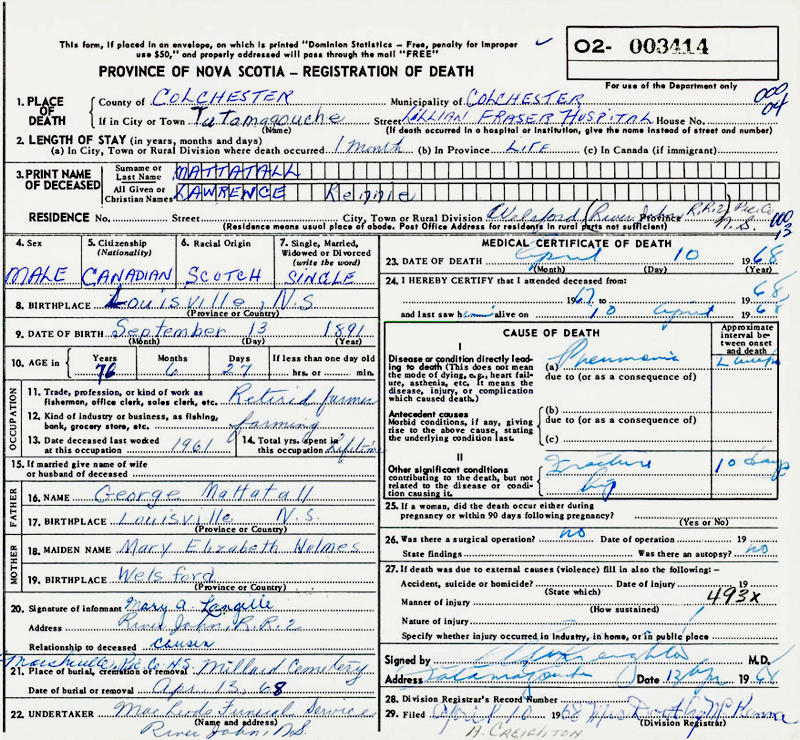 This form, if placed in an envelope, on which is printed "Dominion Statistics – Free, penalty for improper
use $50," and properly addressed will pass through the mail "FREE"
02- 003414
PROVINCE OF NOVA SCOTIA – REGISTRATION OF DEATH
For use of the Department only
000
04
1. PLACE OF DEATH
County of COLCHESTER Municipality of COLCHESTER
If in City or Town Tatamagouche Street LILLIAN FRASER HOSPITAL House No.
(Name) (If death occurred in a hospital or institution, give the name instead of street and number)
2. LENGTH OF STAY (in years, months and days)
(a) In City, Town or Rural Division where death occurred 1 month (b) In Province LIFE (c) In Canada (if immigrant)
3. PRINT NAME OF DECEASED
Surname or Last Name MATTATALL
All Given or Christian Names LAWRENCE Rennie
RESIDENCE No. Street City, Town or Rural Division Welsford (River John R.R.2) Pic. Co Province N.S.
(Residence means usual place of abode. Post Office Address for residents in rural parts not sufficient)
000
13
4. Sex
MALE
5. Citizenship (Nationality)
CANADIAN
6. Racial Origin
SCOTCH
7. Single, Married, Widowed or Divorced (write the word)
SINGLE
8. BIRTHPLACE Louisville, N.S
(Province or Country)
9. DATE OF BIRTH September 13 1891
(Month) (Day) (Year)
10. AGE in
Years Months Days If less than one day old
76 6 27 hrs. or min.
OCCUPATION
11. Trade, profession, or kind of work as fisherman, office clerk, sales clerk, etc. Retired farmer
12. Kind of industry or business, as fishing, bank, grocery store, etc. farming
13. Date deceased last worked at this occupation 1961
14. Total yrs. spent in this occupation lifetime
15. If married give name of wife or husband of deceased
FATHER
16. NAME George Mattatall
17. BIRTHPLACE Louisville N.S.
(Province or Country)
MOTHER
18. MAIDEN NAME Mary Elizabeth Holmes
19. BIRTHPLACE Welsford
(Province or Country)
20. Signature of informant Mary A Langille
Address River John R.R.2
Relationship to deceased cousin
Pic. Co. N.S.
21. Place of burial, cremation or removal Millard Cemetery
Date of burial or removal Apr. 13, 68
22. UNDERTAKER MacLeods Funeral Service
(Name and address)
River John, N.S.
MEDICAL CERTIFICATE OF DEATH
23. DATE OF DEATH April 10 1968
(Month) (Day) (Year)
24. I HEREBY CERTIFY that I attended deceased from:
1967 68
and last saw him alive on 10 April 1968
CAUSE OF DEATH
Approximate interval between onset and death
I
Disease or condition directly leading to death (This does not mean the mode of dying, e.g., heart failure, asthenia, etc. It means the disease, injury, or complication which caused death.)
(a) Pneumonia
due to (or as a consequence of)
Antecedent causes
Morbid conditions, if any, giving rise to the above cause, stating the underlying condition last.
(b)
due to (or as a consequence of)
(c)
II
Other significant conditions contributing to the death, but not related to the disease or condition causing it.
Fracture
hip
10 days
25. If a woman, did the death occur either during pregnancy or within 90 days following pregnancy?
(Yes or No)
26. Was there a surgical operation? no Date of operation 19
State findings Was there an autopsy? no
27. If death was due to external causes (violence) fill in also the following:–
Accident, suicide or homicide? Date of injury 19
(State which)
Manner of injury 493x
(How sustained)
Nature of injury
Specify whether injury occurred in industry, in home, or in public place
Signed by M.D.
Address Tatamagouche Date 13 Apr 1968
28. Division Registrar's Record Number
29. Filed April 1968 Mrs Dorothy McKenna
(Division Registrar)
A. CREIGHTON